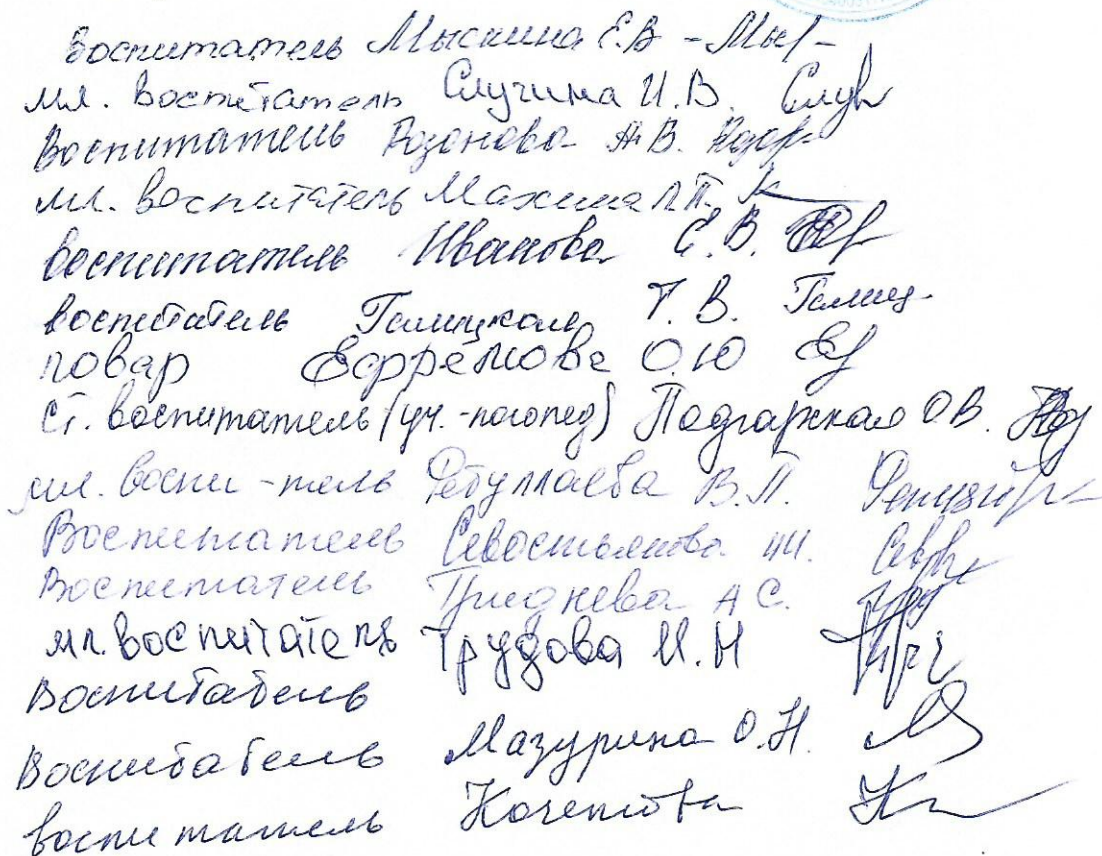 воспитатель Мыскина Е.В -Мыс-
мл. воспитатель Случина И.В. Случ
Воспитатель А.В.
мл. воспитатель Махина Л.П.
воспитатель Иванова Е.В.
воспитатель Галицкая Т.В. Галиц
повар Ефремова О.Ю Еf
Ст. воспитатель (уч.-логопед) Подгарская О.В.
мл. воспи-тель В.П.
Воспитатель Севостьянова
Воспитатель А С.
мл. воспитатель Трудова И.Н
Воспитатель
Воспитатель Мазурина О.Н.
воспитатель Кочетова